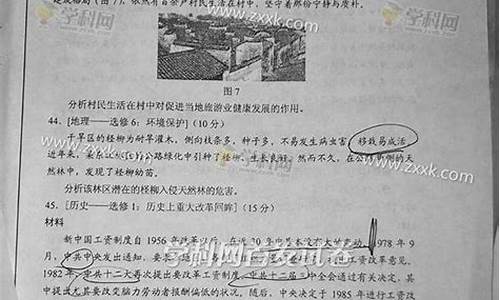 学科网 www.zxxk.com
依然有百余户村民生活在村中,坚守着那份宁静与质朴。
图7
分析村民生活在村中对促进当地旅游业健康发展的作用。
44. [地理——选修6:环境保护] (10分)
干旱区的柽柳为耐旱灌木,侧向枝条多,种子多,不易发生病虫害,移栽易成活
近年来,
路绿化中引种了柽柳,生长良好。然而不久,在公
侧的天
然林中,发现了柽柳幼苗。
分析该林区潜在的柽柳入侵天然林的危害。
45. [历史——选修1:历史上重大改革回眸] (15分)
材料
新中国工资制度自1956年改革以后,在近30年中基本没有大的变动。1978年9
月,中共中央发出通知,要
工资改革意见。
1982年,中共十二大再次提出要改革工资制度。中共十二届三中全会通过有关决定,其
中提出尤其要改变脑力劳动者报酬偏低的状况。随后,中央决定于1985年进行工资改
学科网首发试卷
www.zxxk.com